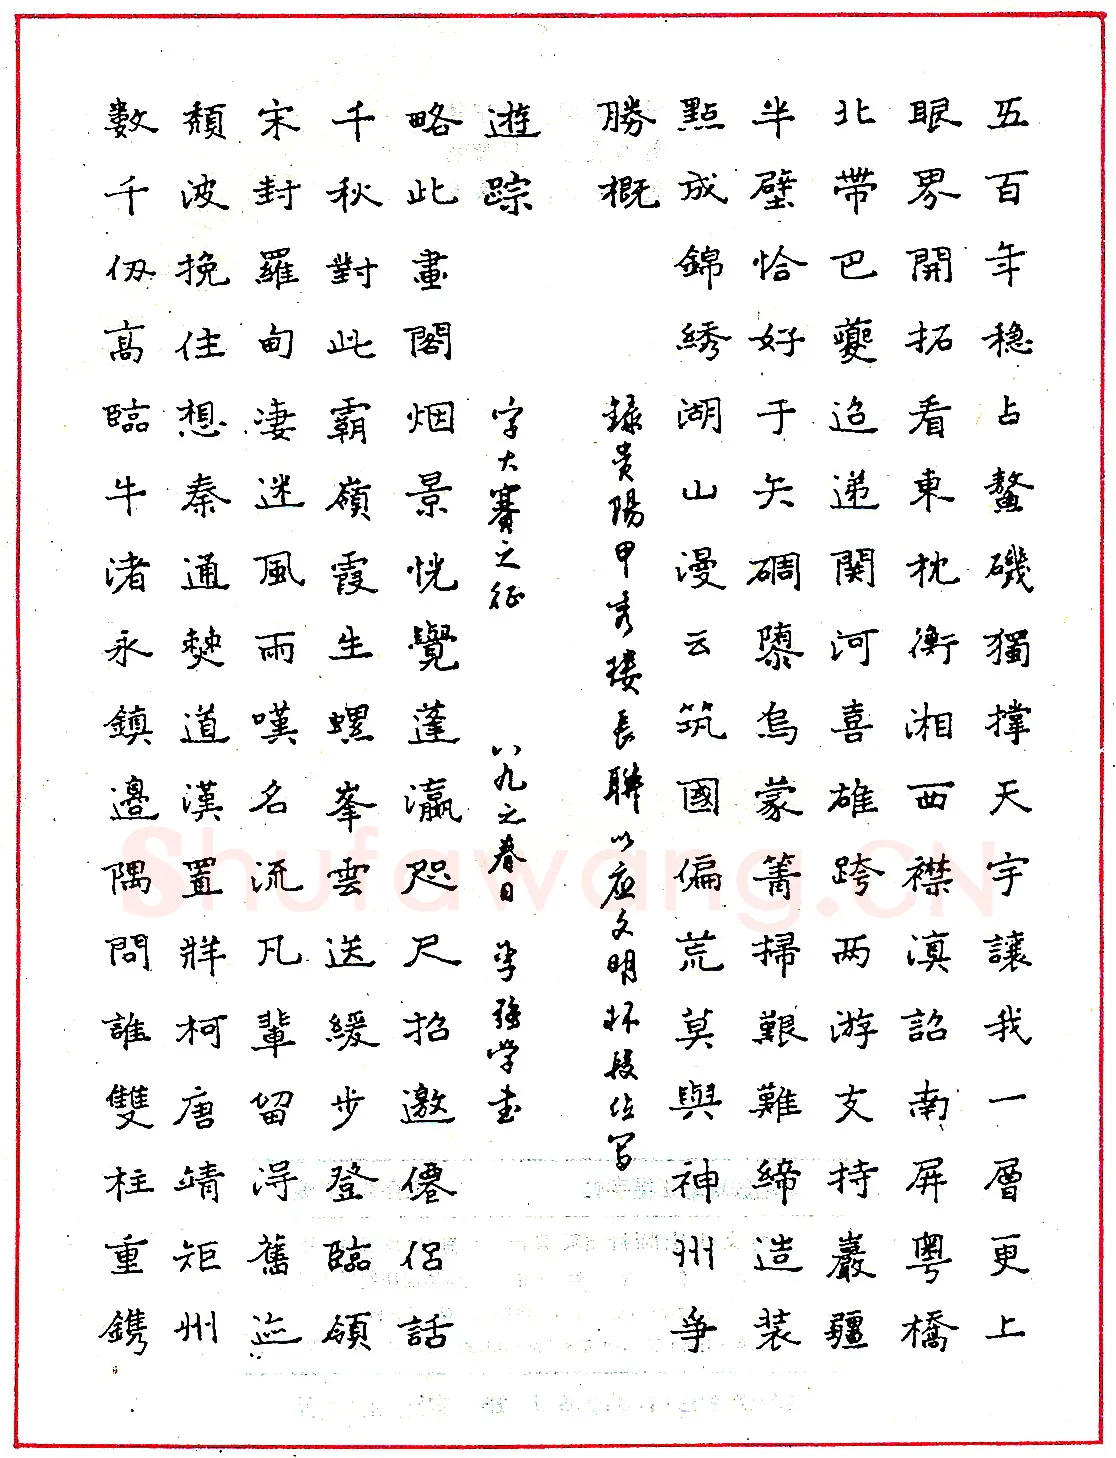 五百年穏占鰲磯獨撑天宇讓我一層更上
眼界開拓看東枕衡湘西襟滇詔南屏粵橋
北帶巴夔迢递関河喜雄跨两游支持巖疆
半壁恰好于矢碉隳烏蒙箐掃艱難締造装
點成錦綉湖山漫云筑國偏荒莫與神州爭
勝概
數千仞高臨牛渚永鎮邊隅問誰雙柱重鐫
頹波挽住想秦通僰道漢置牂柯唐靖矩州
宋封羅甸凄迷風雨嘆名流凡輩留得舊迹
千秋對此霸嶺霞生螺峯雲送緩步登臨領
略此畫閣烟景恍覺蓬瀛咫尺招邀僊侣話
遊踪
録貴陽甲秀楼長聯以应文明杯段位写
字大赛之征 八九之春日 李強学書
Shufawang.CN